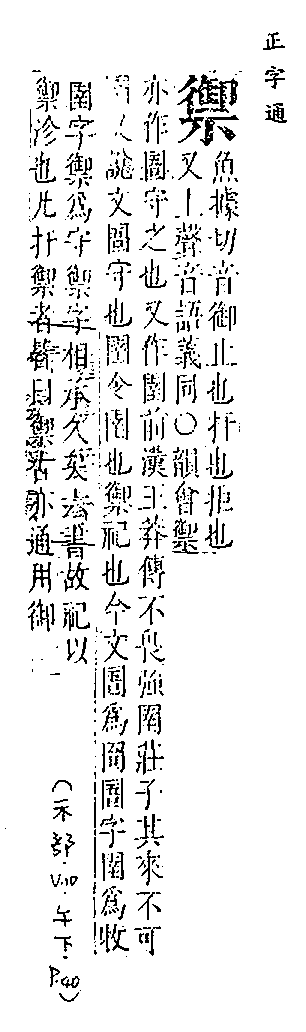 正字通
禦 魚據切音御止也扞也拒也
又上聲音語義同○韻會禦
亦作圉守之也又作圄前漢王莽傳不畏強圉莊子其來不可
圉又說文圄守也囹令圄也禦祀也今文圄為囹圄字圉為牧
圉字禦為守禦字相承久矣六書故祀以
禦沴也凡扞禦者皆曰禦古亦通用御
(示部.V.10 午下.P.40)